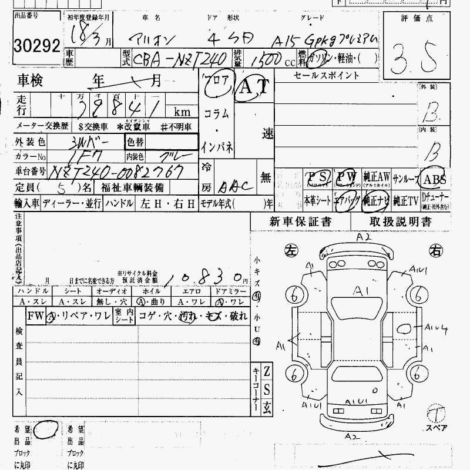 出品番号 初年度登録年月 車名 ドア 形状 グレード 評価点
30292 18 3月 アリオン 4 SD A15 Gpkgプレミアム 3.5
車歴 型式 CBA-NZT240 排気量 1500 CC ガソリン・軽油・( )
車検 年 月 フロア AT セールスポイント
走行 39841 km コラム
メーター交換歴 $交換車 *改竄車 #不明車 インパネ 速
外装色 シルバー 色替 外装 B
カラーNo 1F7 内装色 グレー 内装 B
車台番号 NZT240-0082767 冷房 AAC 無
定員 (5)名 福祉車輌装備 PS PW 純正AW サンルーフ ABS
輸入車 ディーラー・並行 ハンドル 左H・右H モデル年式( 年) 本革シート エアバッグ 純正ナビ 純正TV
新車保証書 取扱説明書
注意事項(出品店記入)
左 A2 右
月 日までに名変できる方 ※リサイクル料金預託済金額 10,830円
ハンドル シート オーディオ ホイル エアロ ドアミラー
A・スレ A・スレ 無し・穴 A・曲り A・ワレ A・ワレ
FW A・リペア・ワレ 室内シート コゲ・穴・汚れ・キズ・破れ
検査員記入
小キズ 小U
キーコーナー ZS玄
6 6 6 6
A1 A1 A1 A1
AU1 A1U1 A1U1
A2
スペア
希望出品ブロックに丸印 希望出品ブロックに丸印